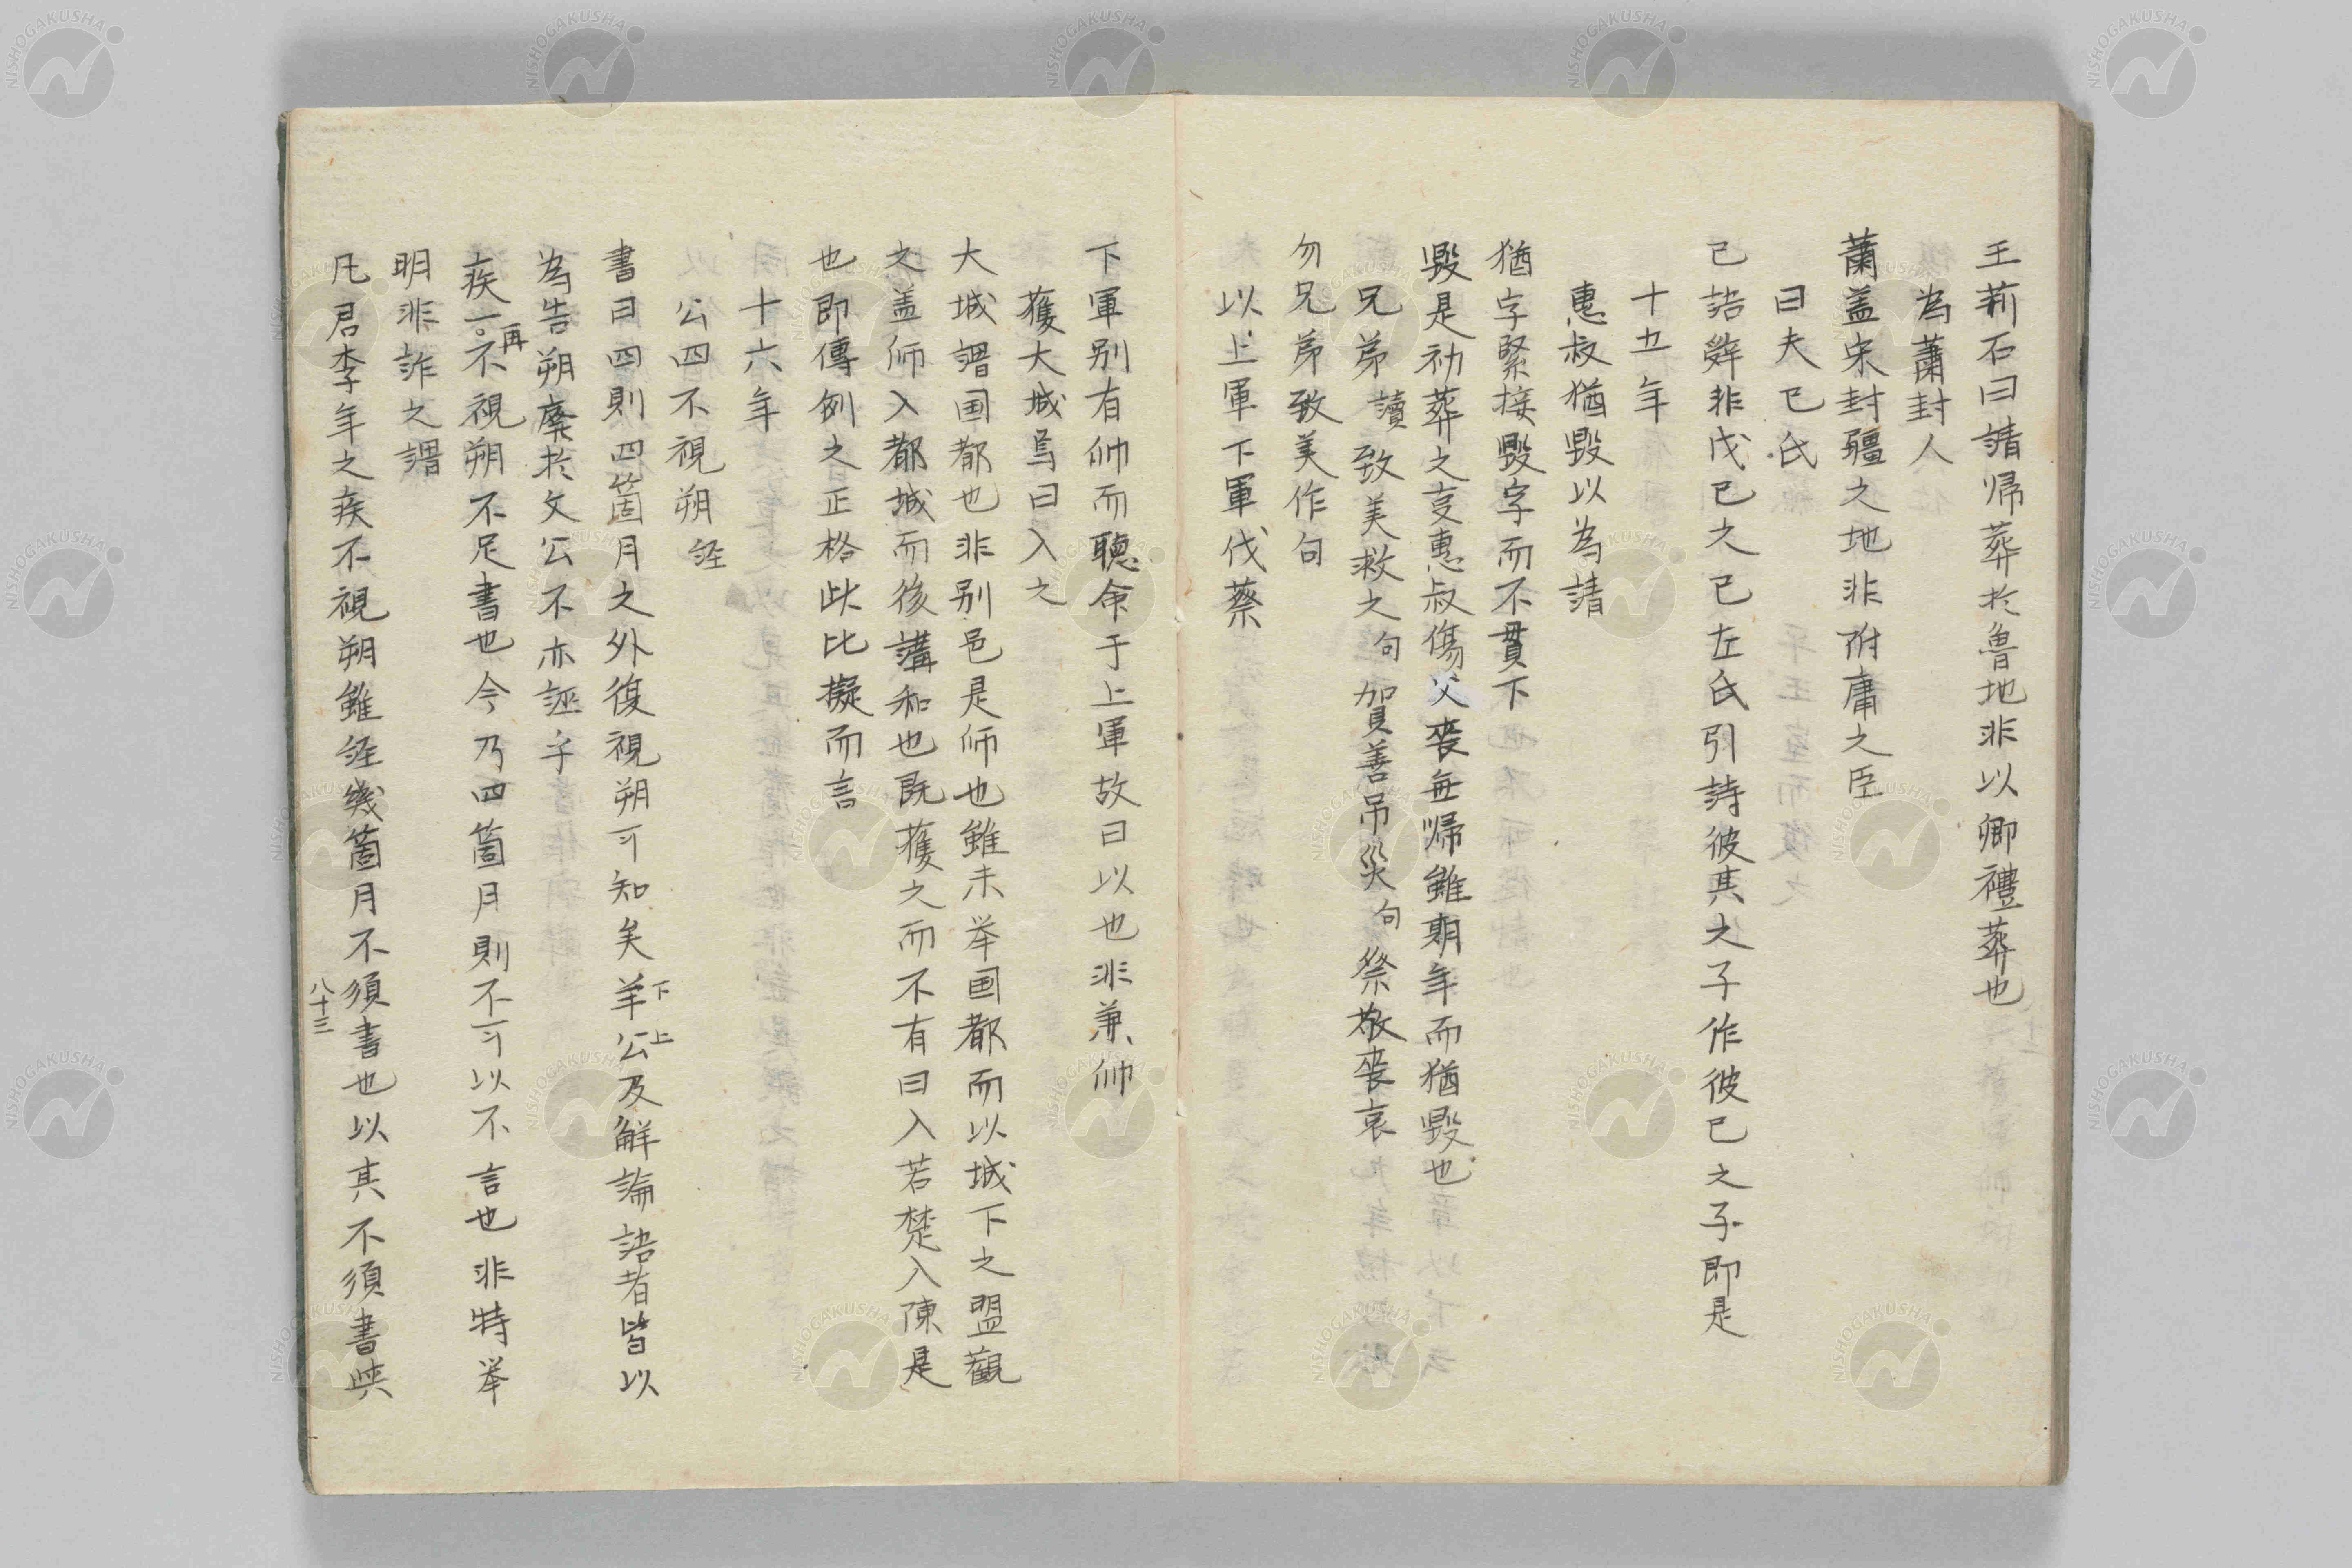 王荊石曰請帰葬於魯地非以卿禮葬也
為蕭封人
蕭盖宋封疆之地非附庸之臣
曰夫已氏
已語辭非戊已之已左氏引詩彼其之子作彼已之子即是
十五年
惠叔猶毀以為請
猶字緊接毀字而不貫下
毀是初葬之妄惠叔傷父喪無帰雖期年而猶毀也
兄弟讀致美救之句賀善吊災句祭敬喪哀
勿兄弟致美作句
以上軍下軍伐蔡
下軍别有帥而聴命于上軍故曰以也非兼帥
獲大城焉曰入之
大城謂国都也非别邑是师也雖未举国都而以城下之盟觀
之盖师入都城而後講和也既獲之而不有曰入若楚入陳是
也即傳例之正格此比擬而言
十六年
公四不視朔 経
書曰四則四箇月之外復視朔可知矣羊下公上及解論語者皆以
為告朔廃於文公不亦誣乎
疾一。再不視朔不足書也今乃四箇月則不可以不言也非特举
明非詐之謂
凡君李年之疾不視朔雖経幾箇月不須書也以其不須書
八十三
NISHOGAKUSHA